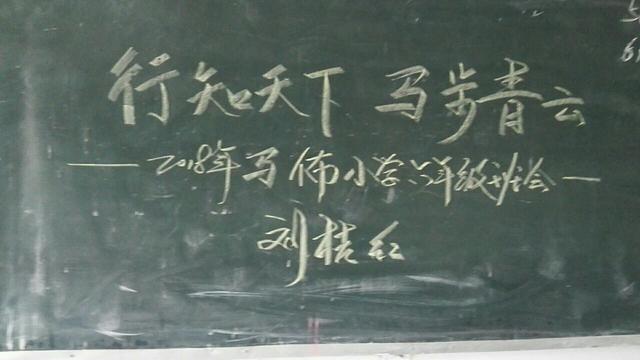 行知天下 马步青云
——2018年马佈小学六年级班会——
刘桔红